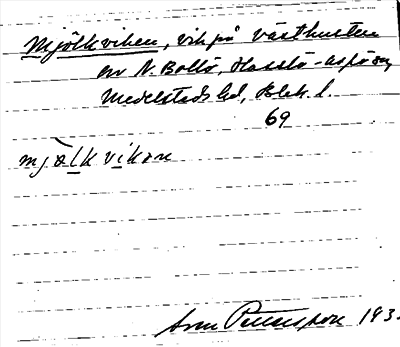 Mjölkviken, vik på västkusten
av N. Bollö, Hasslö-Aspö sn,
Medelstads hd, Blek. l.
69
mjölkvikan
193